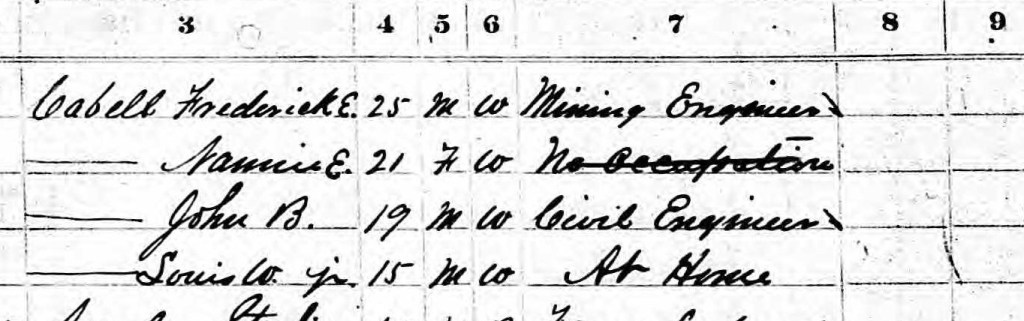 3 4 5 6 7 8 9
Cabell Frederick E. 25 M W Mining Engineer
Nannie E. 21 F W No occupation
John B. 19 M W Civil Engineer
Louis W. jr. 15 M W At Home